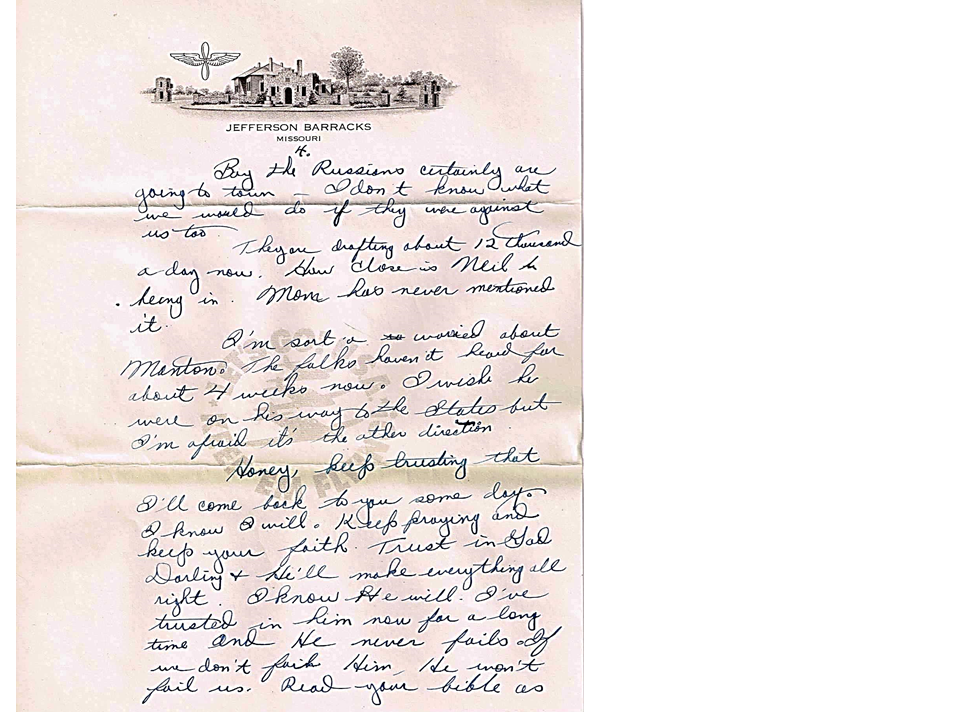 JEFFERSON BARRACKS
MISSOURI
4.
Boy the Russians certainly are
going to town – I don't know what
we would do if they were against
us too
They are drafting about 12 thousand
a day now. How close is Neil to
being in. Mona has never mentioned
it.
I'm sort a worried about
Manton. The folks haven't heard for
about 4 weeks now. I wish he
were on his way to the States but
I'm afraid it's the other direction.
Honey, keep trusting that
I'll come back to you some day.
I know I will. Keep praying and
keep your faith. Trust in God
Darling + He'll make everything all
right. I know He will. I've
trusted in him now for a long
time and He never fails. If
we don't fail Him, He won't
fail us. Read your bible as